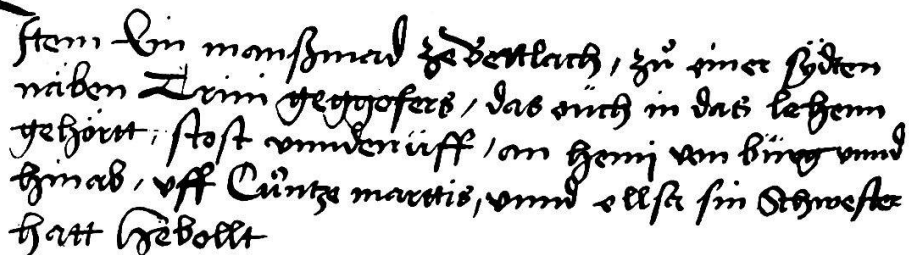 Item Ein manßmad ze Vettlach, zů einer sÿdten
näben Trini geggofers, das oüch in das lehenn
gehörtt, stost vnnden üff, an heini von bürg vnnd
hinab, vff Cůntze marttis, vnnd ellsa sin Schwester
hatt